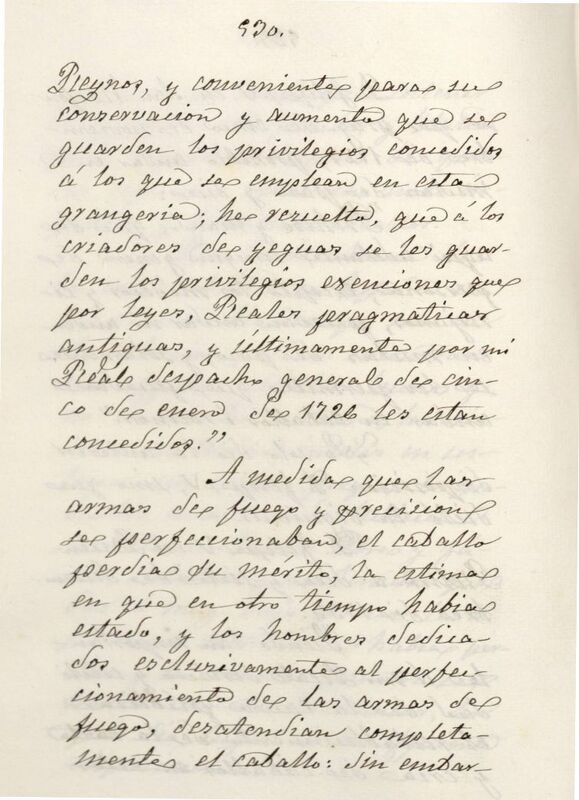 530.
Reynos, y conveniente para su
conservacion y aumento que se
guarden los privilegios concedidos
á los que se emplean en esta
grangeria; he rezuelto, que á los
criadores de yeguas se les guar-
den los privilegios exenciones que
por leyes, Reales pragmaticas
antiguas, y últimamente por mi
Real despacho general de cin-
co de enero de 1726 les estan
concedidos."
A medida que las
armas de fuego y precision
se perfeccionaban, el caballo
perdia su mérito, la estima
en que en otro tiempo habia
estado, y los hombres dedica-
dos esclusivamente al perfec-
cionamiento de las armas de
fuego, desatendian completa-
mente el caballo: sin embar-